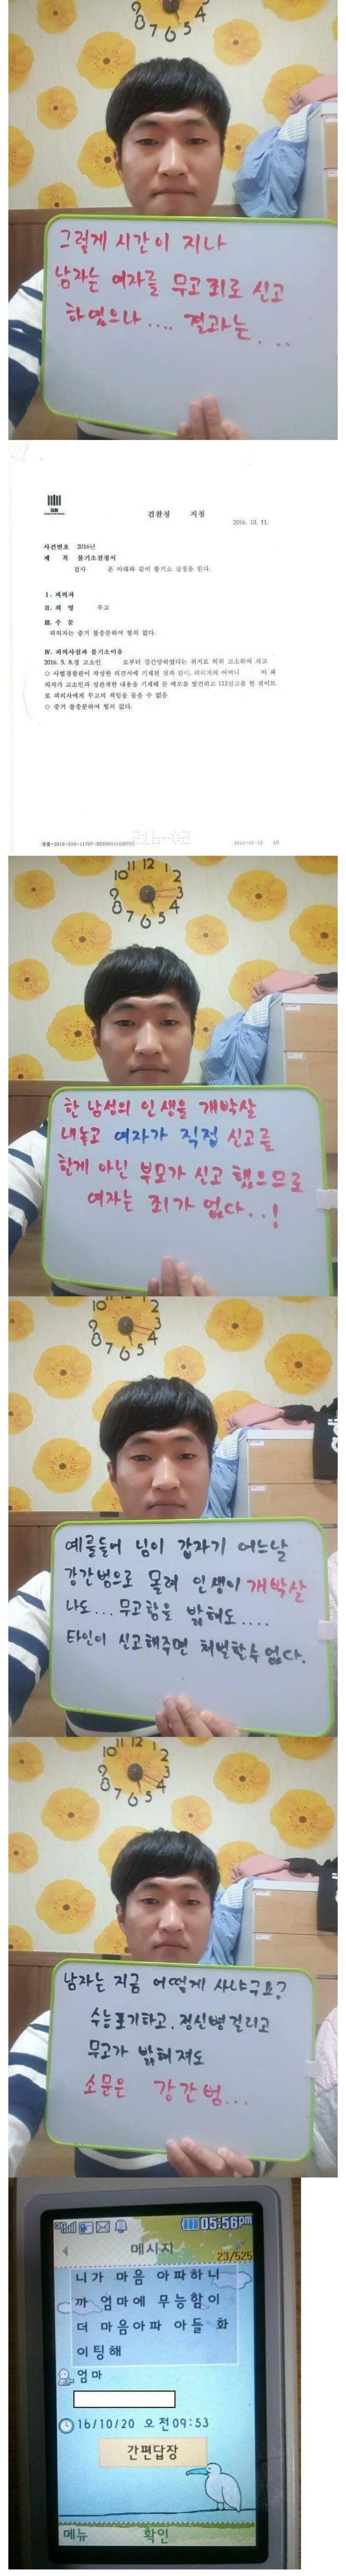 그렇게 시간이 지나
남자는 여자를 무고죄로 신고
하였으나.... 결과는....
검찰청 지청
2016. 10. 11.
사건번호 2016년
제 목 불기소결정서
검사 은 아래와 같이 불기소 결정을 한다.
I. 피의자
II. 죄 명 무고
III. 주 문
피의자는 증거 불충분하여 혐의 없다.
IV. 피의사실과 불기소이유
2016. 5. 8.경 고소인 로부터 강간당하였다는 취지로 허위 고소하여 무고
○ 사법경찰관이 작성한 의견서에 기재된 것과 같이, 피의자의 어머니 이 피
의자가 고소인과 성관계한 내용을 기재해 둔 메모를 발견하고 112신고를 한 것이므
로 피의자에게 무고의 책임을 물을 수 없음
○ 증거 불충분하여 혐의 없다.
2016-10-12 1/1
11 12 1
10 2
9 3
8 4
7 6 5
한 남성의 인생을 개박살
내놓고 여자가 직접 신고를
한게 아닌 부모가 신고 했으므로
여자는 죄가 없다..!
예를들어 님이 갑자기 어느날
강간범으로 몰려 인생이 개박살
나도... 무고함을 밝혀도....
타인이 신고해주면 처벌할수 없다.
남자는 지금 어떻게 사냐구요?
수능포기하고. 정신병걸리고
무고가 밝혀져도
소문은 강간범...
05:56pm
메시지
23/525
니가 마음 아파하니
까 엄마에 무능함이
더 마음아파 아들 화
이팅해
엄마
16/10/20 오전09:53
간편답장
메뉴 확인